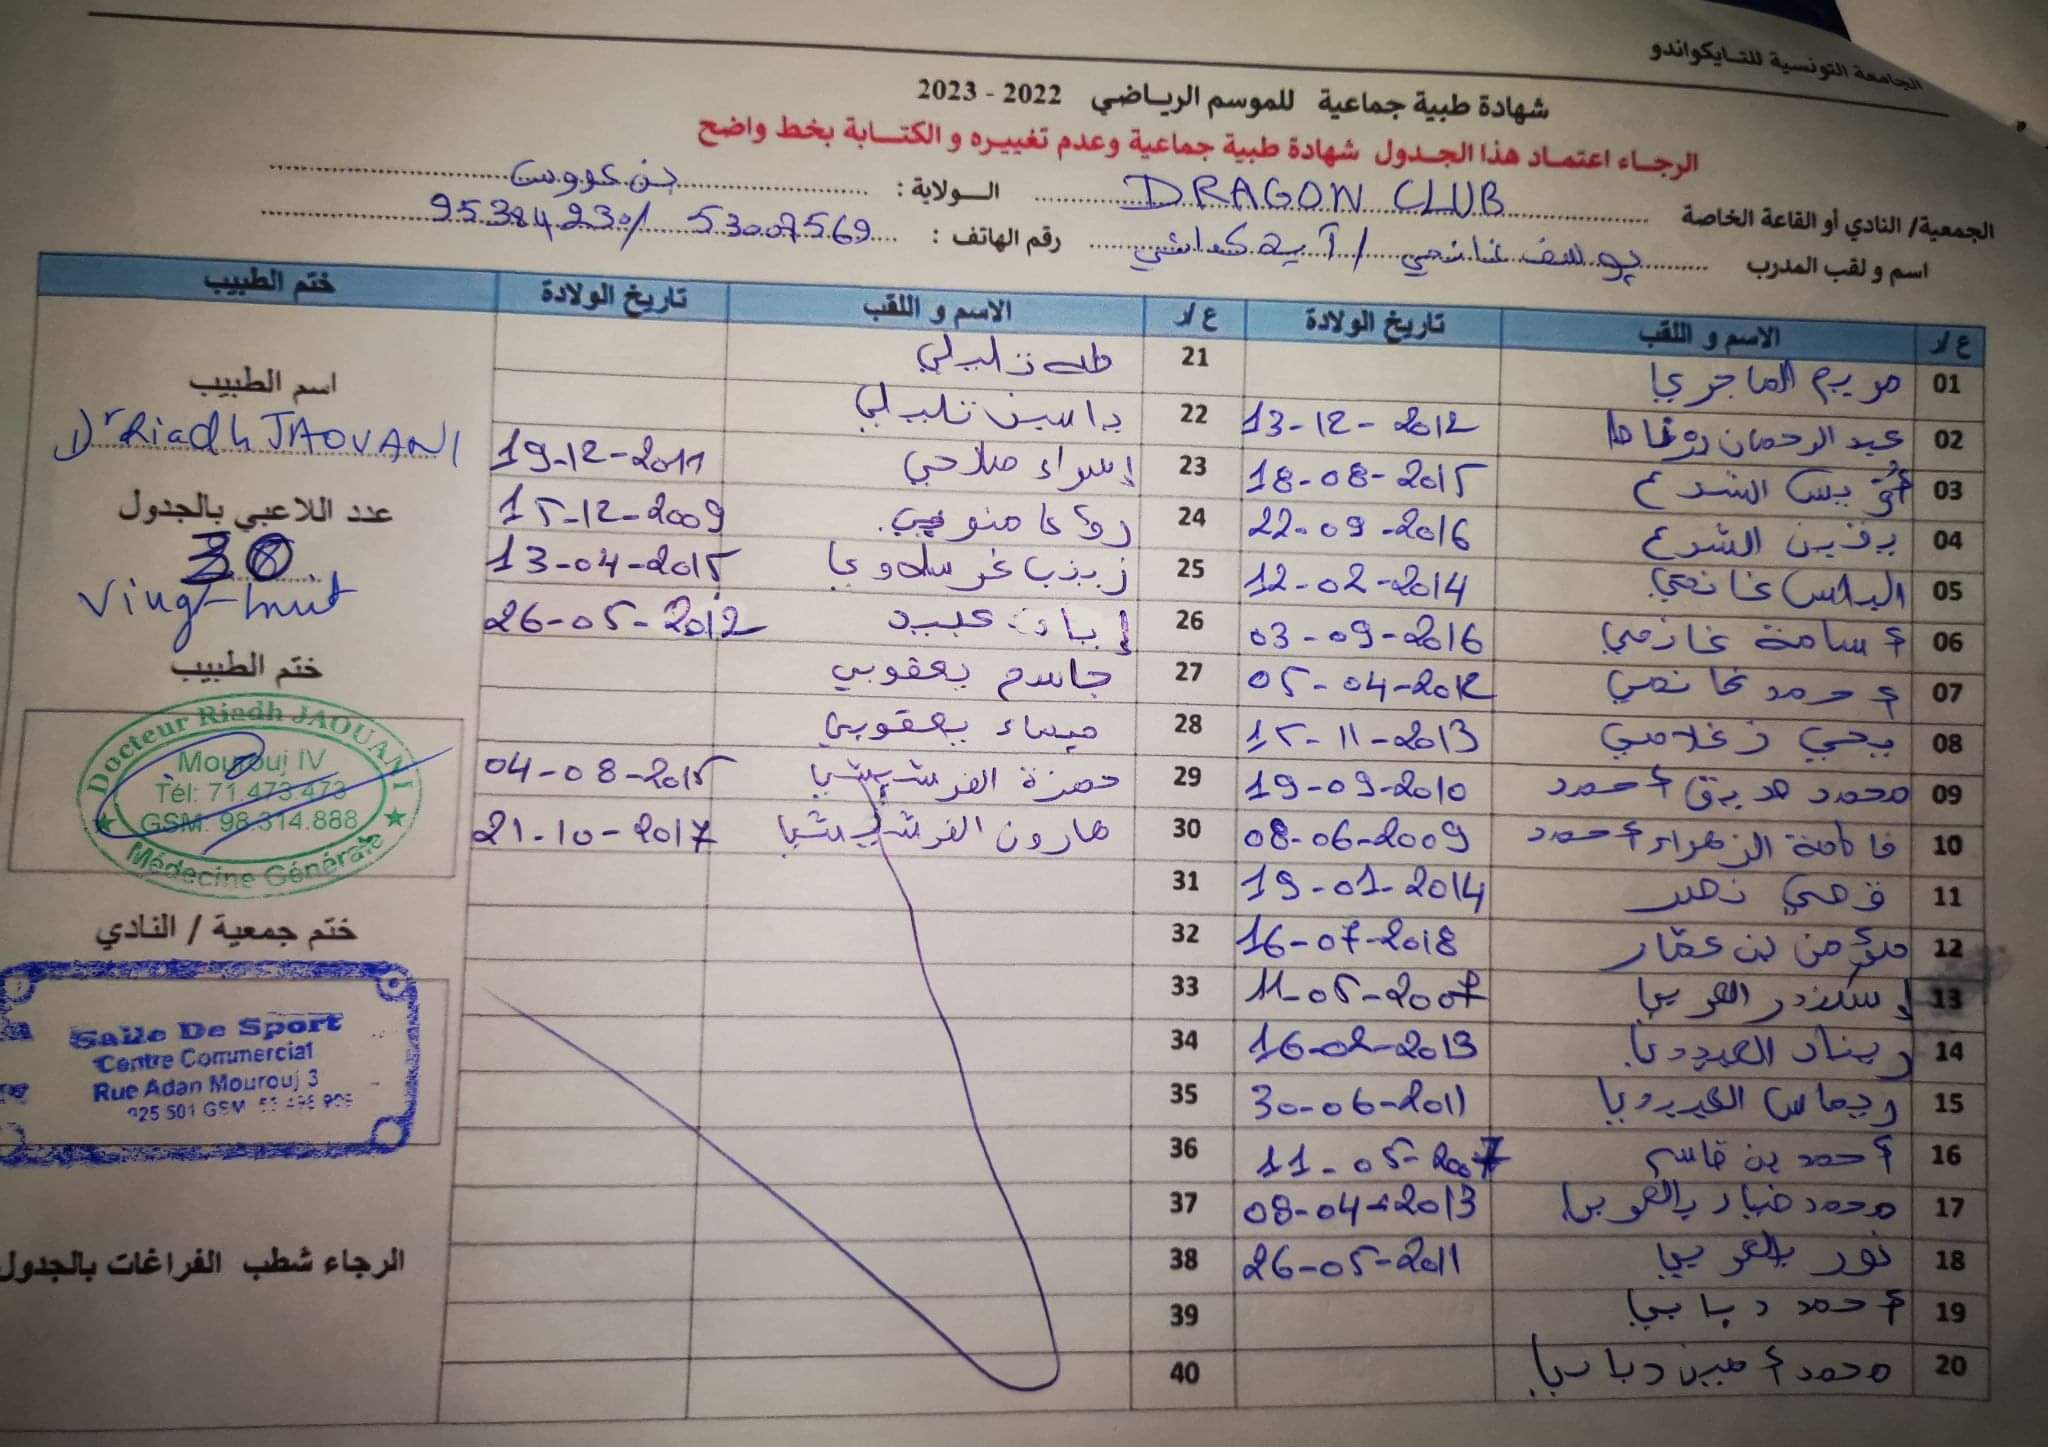 الجامعة التونسية للتايكواندو
شهادة طبية جماعية للموسم الرياضي 2022 - 2023
الرجاء اعتماد هذا الجدول شهادة طبية جماعية وعدم تغييره و الكتابة بخط واضح
الجمعية/ النادي أو القاعة الخاصة DRAGON CLUB الولاية : بن عروس
اسم و لقب المدرب يوسف غانمي / آية رقم الهاتف : 53007569 / 95384230
ع/ر الاسم و اللقب تاريخ الولادة ع/ر الاسم و اللقب تاريخ الولادة ختم الطبيب
01 مريم الماجري
02 عبد الرحمان 13-12-2012
03 الشرع 18-08-2015
04 الشرع 22-09-2016
05 الياس غانمي 12-02-2014
06 أسامة غانمي 03-09-2016
07 أحمد غانمي 05-04-2012
08 يحيي زغلامي 15-11-2013
09 محمد صديق أحمد 19-09-2010
10 فاطمة الزهراء أحمد 08-06-2009
11 نصر 19-01-2014
12 مؤمن بن عمار 16-07-2018
13 إسكندر 11-05-2007
14 ريناد 16-02-2013
15 ريماس 30-06-2011
16 أحمد بن قاسم 11-05-2007
17 محمد ضياء 08-04-2013
18 نور 26-05-2011
19 أحمد دبابي
20 محمد أمين دبابي
21 طه تليلي
22 ياسين تليلي
23 إسراء صالحي 19-12-2011
24 15-12-2009
25 زينب غرسلاوي 13-04-2015
26 عبيد 26-05-2012
27 جاسم يعقوبي
28 ميساء يعقوبي
29 حمزة الفرشيشي 04-08-2015
30 هارون الفرشيشي 21-10-2017
31
32
33
34
35
36
37
38
39
40
اسم الطبيب
Dr Riadh JAOUANI
عدد اللاعبي بالجدول
Vingt-huit
ختم الطبيب
Docteur Riadh JAOUANI
Mourouj IV
Tél: 71.473.473
GSM: 98.314.888
Médecine Générale
ختم جمعية / النادي
Salle De Sport
Centre Commercial
Rue Adan Mourouj 3
الرجاء شطب الفراغات بالجدول